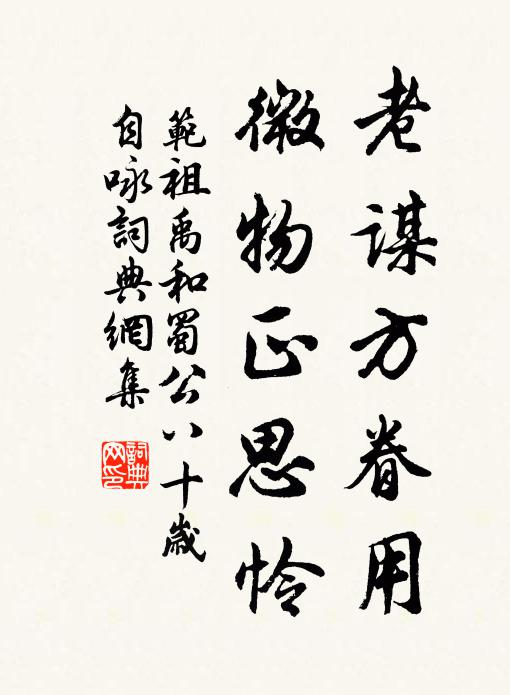 老謀方眷用
微物正思怜
範祖禹和蜀公八十歲
自咏詞典網集
詞典
网印